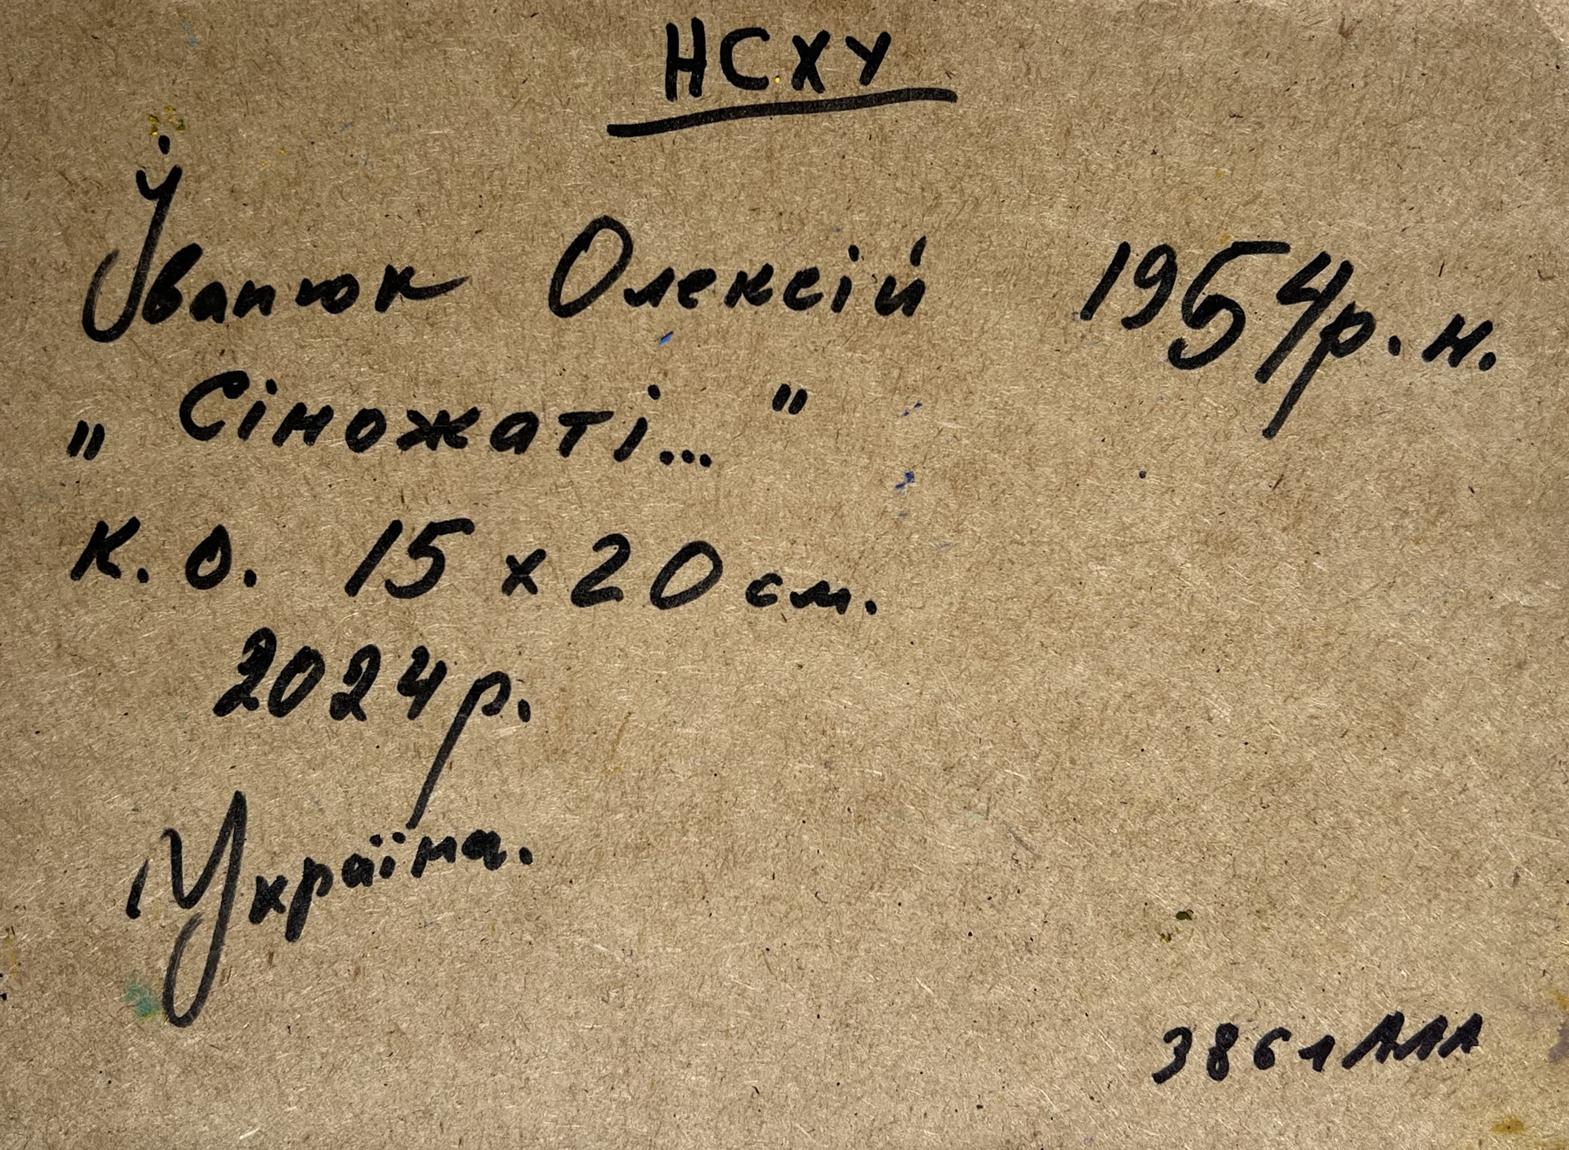 НСХУ
Іванюк Олексій 1954р.н.
„Сіножаті..."
к. о. 15 x 20 см.
2024р.
Україна.
3861 ААА